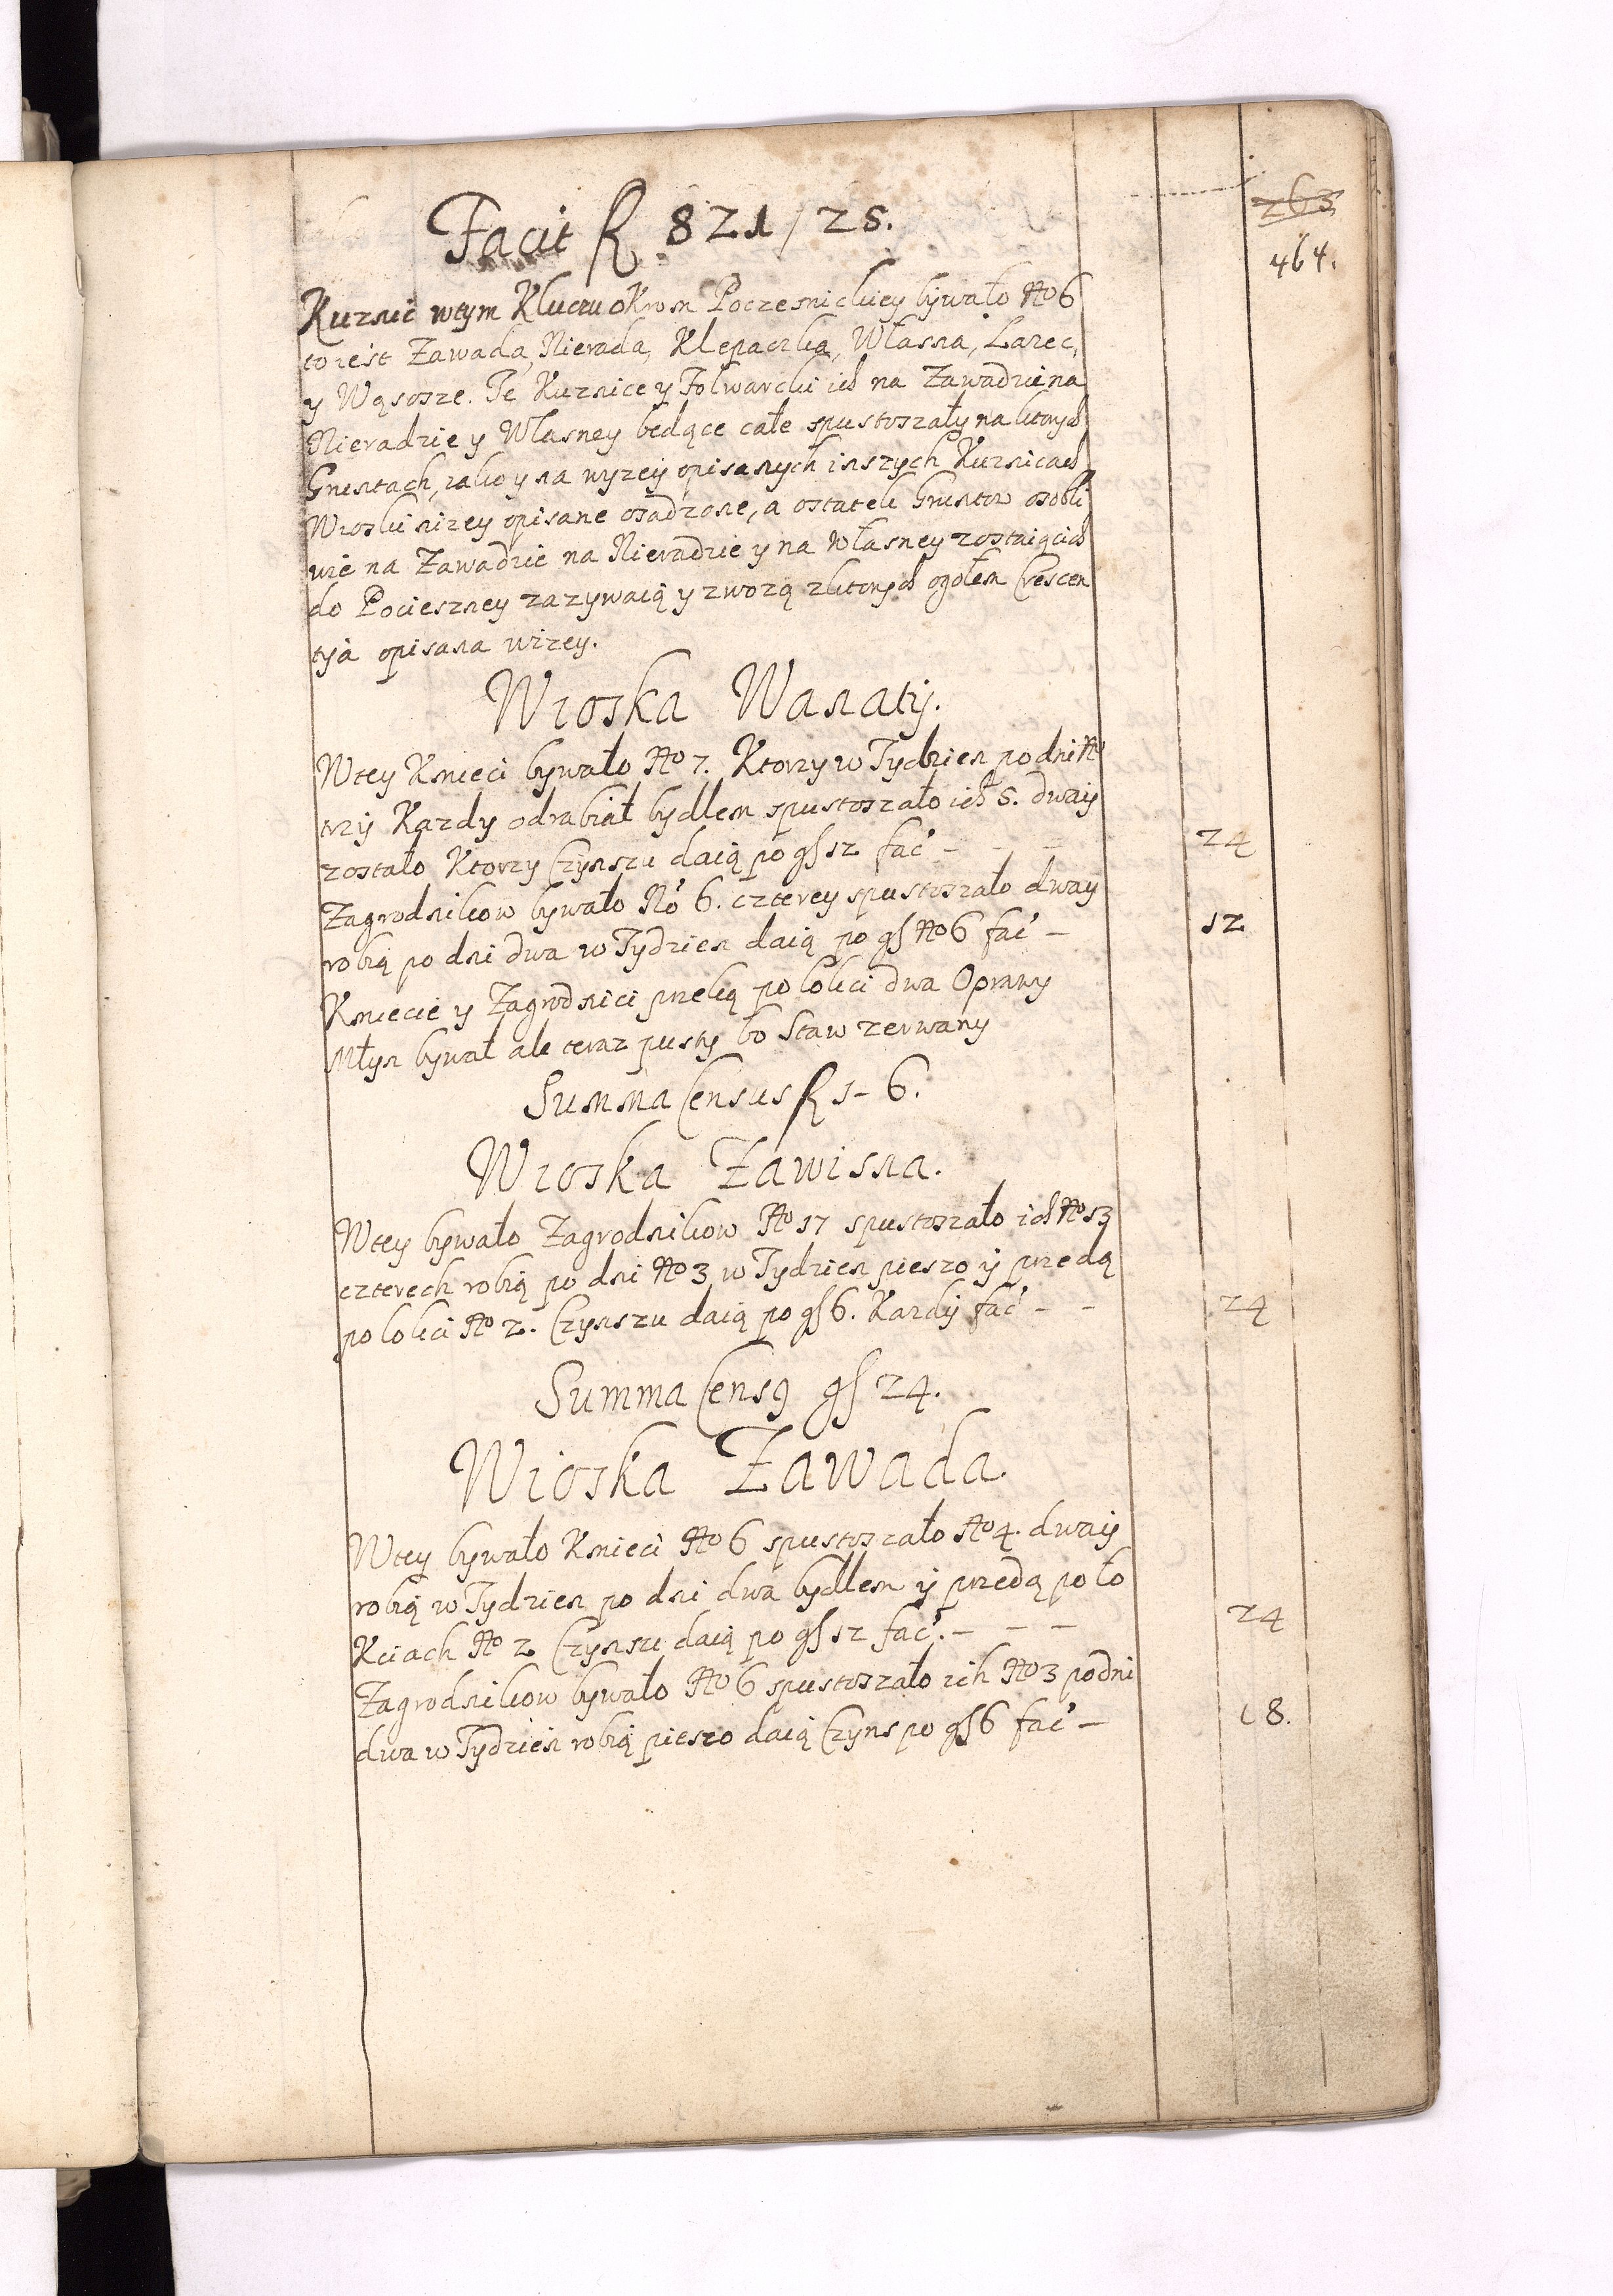 263
464.
Facit R 821/25.
Kuznic wtym Kluczu okrom Poczesnickiey bywało No 6
to iest Zawada, Nierada, Klepaczka, Własna, Łazec,
y Wąsosze. Te Kuznice y Folwarcki ich na Zawadzie na
Nieradzie y Własney będące całe spustoszały na ktorych
Gruntach, iako y na wyzey opisanych inszych Kuznicach
Wioski nizey opisane osadzone, a ostatek Gruntow osobli
wie na Zawadzie na Nieradzie y na Własney zostaiących
do Pocieszney zazywaią y zwozą zktorych ogołem Crescen
tya opisana wizey.
Wioska Wanaty.
Wtey Kmieci bywało No 7. Ktorzy w Tydzien po dni No
trzy Kazdy odrabiał bydlem spustoszało ich 5. dwaiy
zostało Ktorzy Czynszu daią po gs 12 fac - - - 24
Zagrodnikow bywało No 6. czterey spustoszało dway
robią po dni dwa w Tydzien daią po gs No 6 fac - 12
Kmiecie y Zagrodnici przelią po łokci dwa Oprawy
Młyn bywał ale teraz pusty bo Staw zerwany
Summa Census R 1-6.
Wioska Zawisna.
Wtey bywało Zagrodnikow No 17 spustoszało ich No 13
czterech robią po dni No 3 w Tydzien pieszo ÿ przedą
po łokci No 2. Czynszu daią po gs 6. Kazdÿ fac - - 24
Summa Cens9 gs 24.
Wioska Zawada.
Wtey bywało Kmieci No 6 spustoszało No 4. dwaiÿ
robią w Tydzien po dni dwa bydlem ÿ przedą po ło
Kciach No 2 Czynszu daią po gs 12 fac. - - - 24
Zagrodnikow bywało No 6 spustoszało ich No 3 po dni
dwa w Tydzien robią pieszo daią Czyns po gs 6 fac - 18.